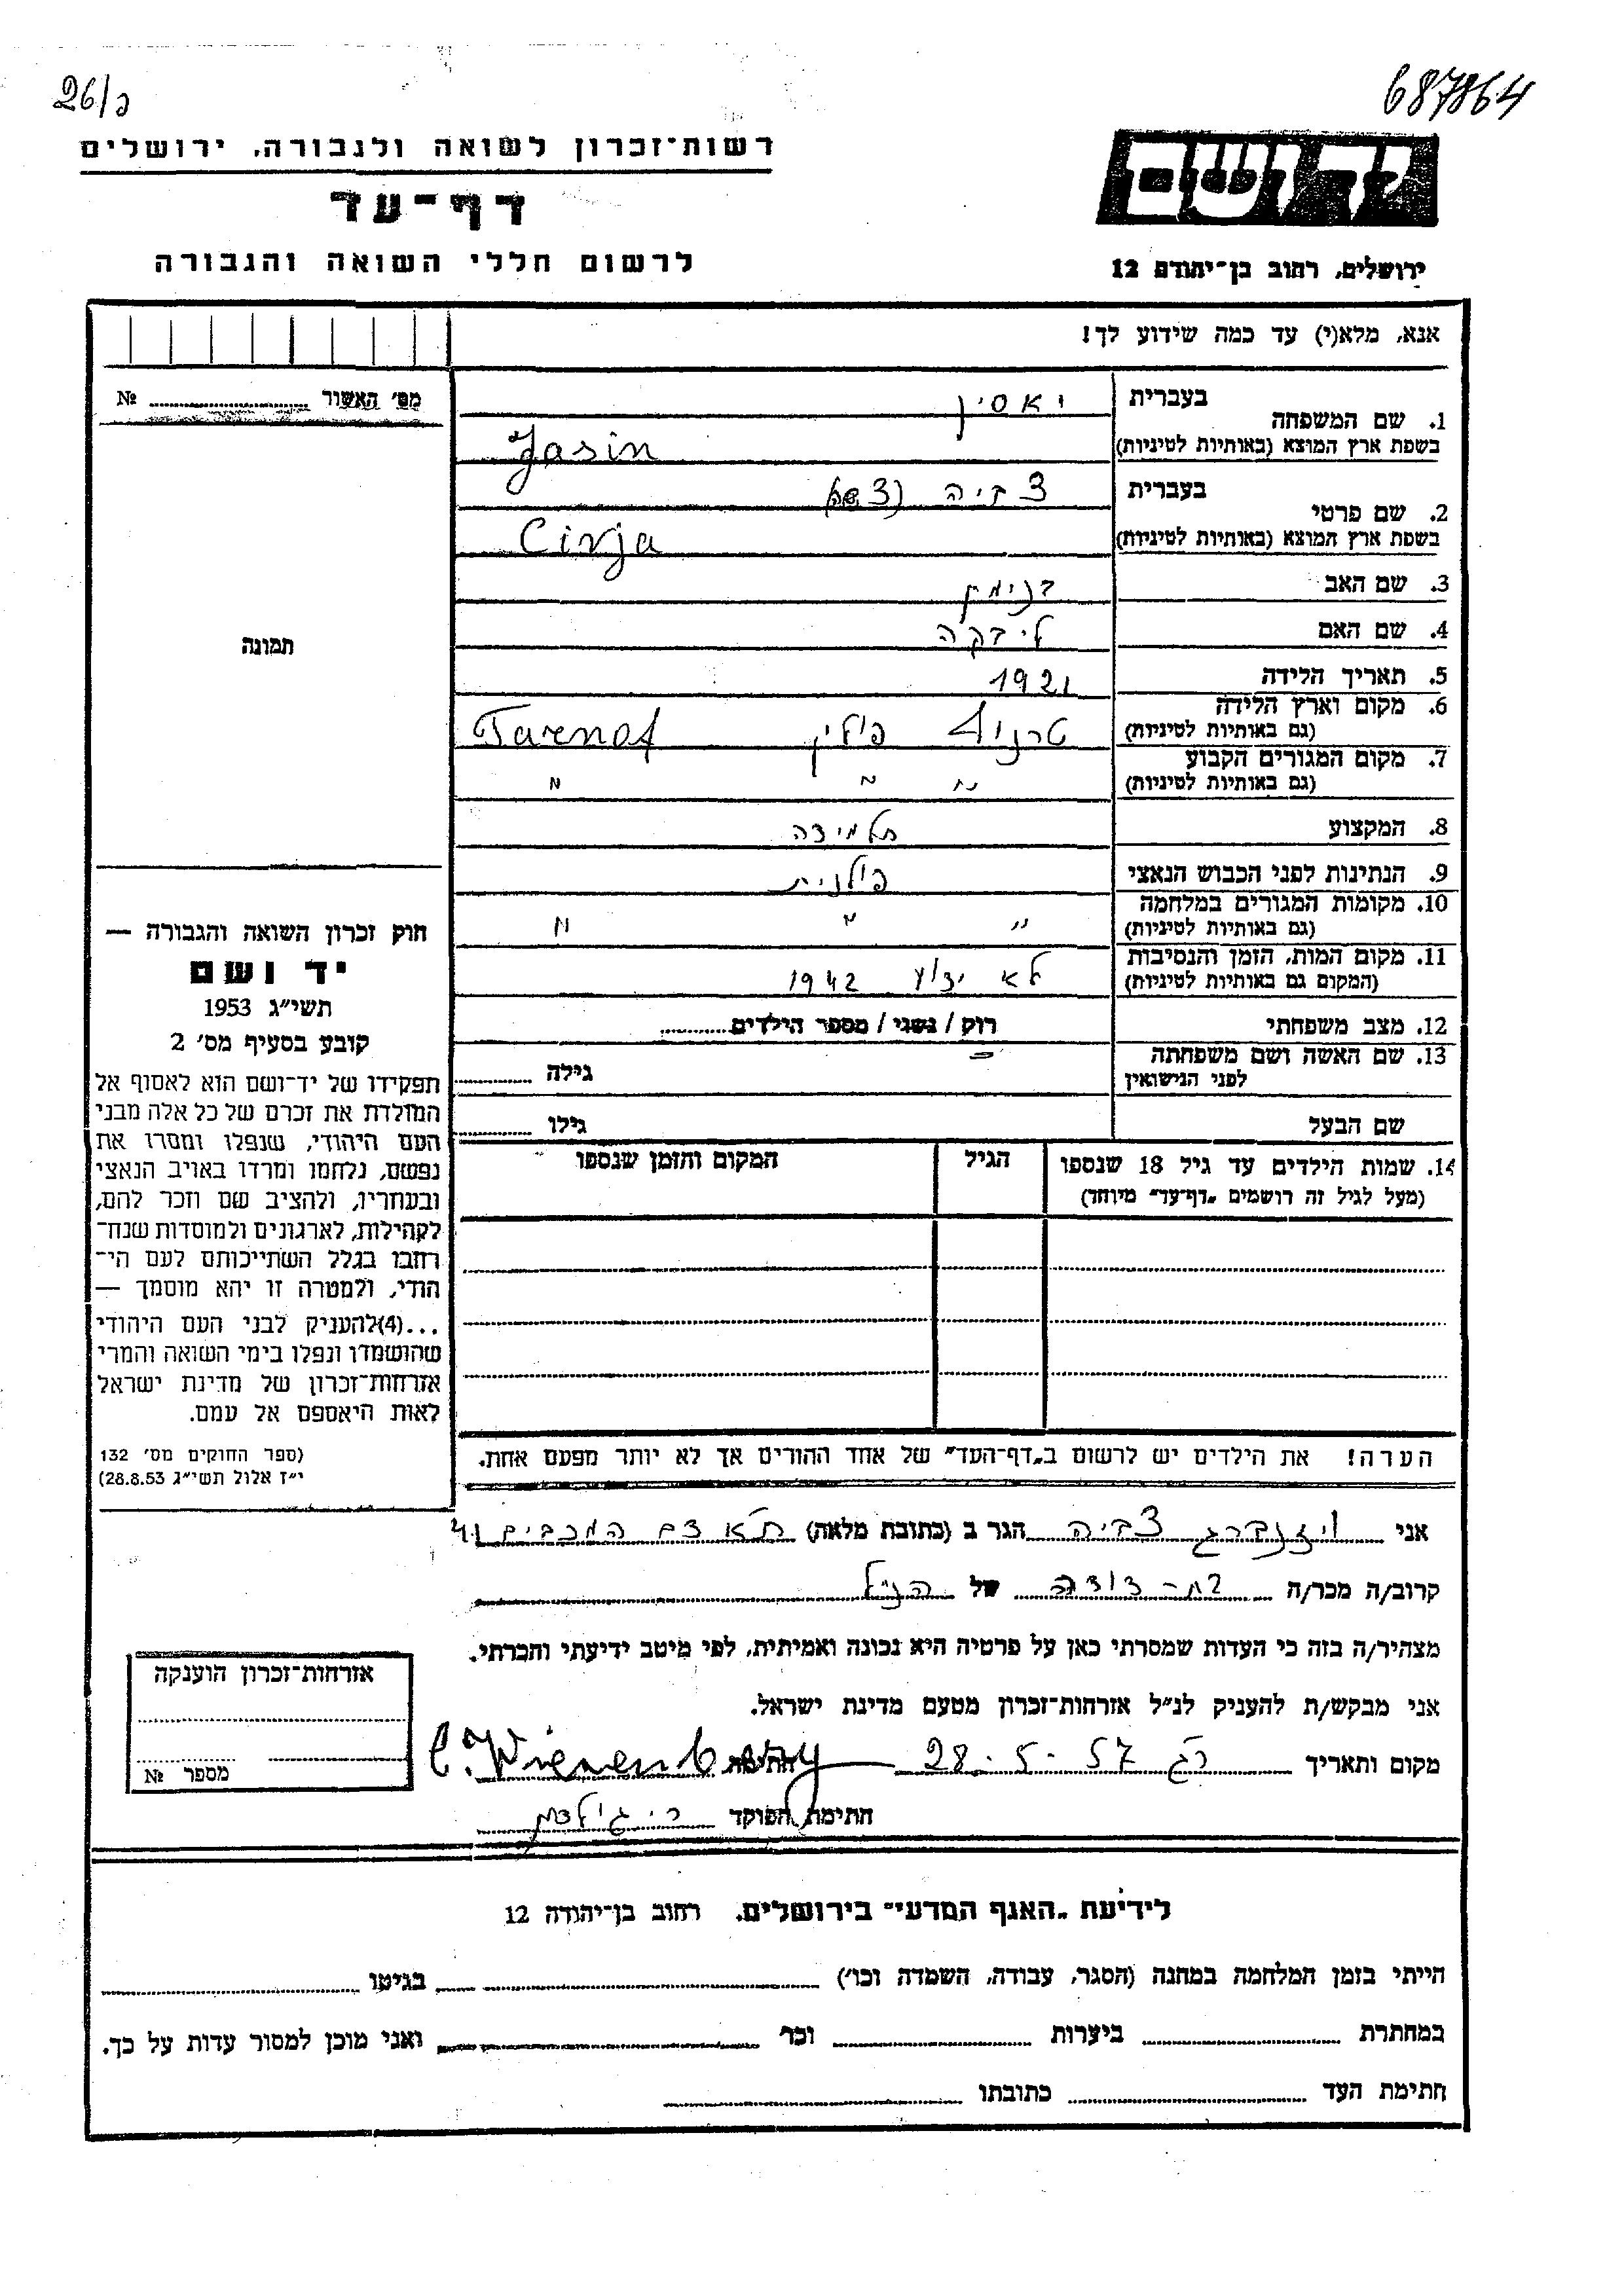 26/כ
687864
רשות־זכרון לשואה ולגבורה, ירושלים
יד ושם
דף־עד
לרשום חללי השואה והגבורה
ירושלים, רחוב בן־יהודה 12
אנא, מלא(י) עד כמה שידוע לך!
מס׳ האשור № ........
בעברית יאסין
1. שם המשפחה
בשפת ארץ המוצא (באותיות לטיניות) Jasin
בעברית צביה
2. שם פרטי
בשפת ארץ המוצא (באותיות לטיניות) Civja
3. שם האב בנימין
4. שם האם ליבקה
5. תאריך הלידה 1921
6. מקום וארץ הלידה
(גם באותיות לטיניות) פולין
7. מקום המגורים הקבוע
(גם באותיות לטיניות) " " "
8. המקצוע תלמידה
9. הנתינות לפני הכבוש הנאצי פולנית
10. מקומות המגורים במלחמה
(גם באותיות לטיניות) " " "
11. מקום המות, הזמן והנסיבות
(המקום גם באותיות לטיניות) לא ידוע 1942
12. מצב משפחתי רוק / נשוי / מספר הילדים........
13. שם האשה ושם משפחתה
לפני הנישואין גילה ........
שם הבעל גילו ........
14. שמות הילדים עד גיל 18 שנספו
(מעל לגיל זה רושמים „דף־עד” מיוחד)
הגיל
המקום והזמן שנספו
הערה! את הילדים יש לרשום ב„דף־העד” של אחד ההורים אך לא יותר מפעם אחת.
תמונה
חוק זכרון השואה והגבורה —
יד ושם
תשי״ג 1953
קובע בסעיף מס׳ 2
תפקידו של יד־ושם הוא לאסוף אל
המולדת את זכרם של כל אלה מבני
העם היהודי, שנפלו ומסרו את
נפשם, נלחמו ומרדו באויב הנאצי
ובעוזריו, ולהציב שם וזכר להם,
לקהילות, לארגונים ולמוסדות שנח־
רבו בגלל השתייכותם לעם הי־
הודי, ולמטרה זו יהא מוסמך —
...(4)להעניק לבני העם היהודי
שהושמדו ונפלו בימי השואה והמרי
אזרחות־זכרון של מדינת ישראל
לאות היאספם אל עמם.
(ספר החוקים מס׳ 132
י״ז אלול תשי״ג 28.8.53)
אני ויזנברג צביה הגר ב (כתובת מלאה) ת"א המכבים 41
קרוב/ה מכר/ה בת-דודה של הנ"ל
מצהיר/ה בזה כי העדות שמסרתי כאן על פרטיה היא נכונה ואמיתית, לפי מיטב ידיעתי והכרתי.
אני מבקש/ת להעניק לנ״ל אזרחות־זכרון מטעם מדינת ישראל.
מקום ותאריך רג 28.5.57 חתימה C. Wiezenberg
חתימת הפוקד
אזרחות־זכרון הוענקה
מספר №
לידיעת „האגף המדעי” בירושלים, רחוב בן־יהודה 12
הייתי בזמן המלחמה במחנה (הסגר, עבודה, השמדה וכו׳) ........ בגיטו ........
במחתרת ........ ביערות ........ וכו׳ ........ ואני מוכן למסור עדות על כך.
חתימת העד ........ כתובתו ........